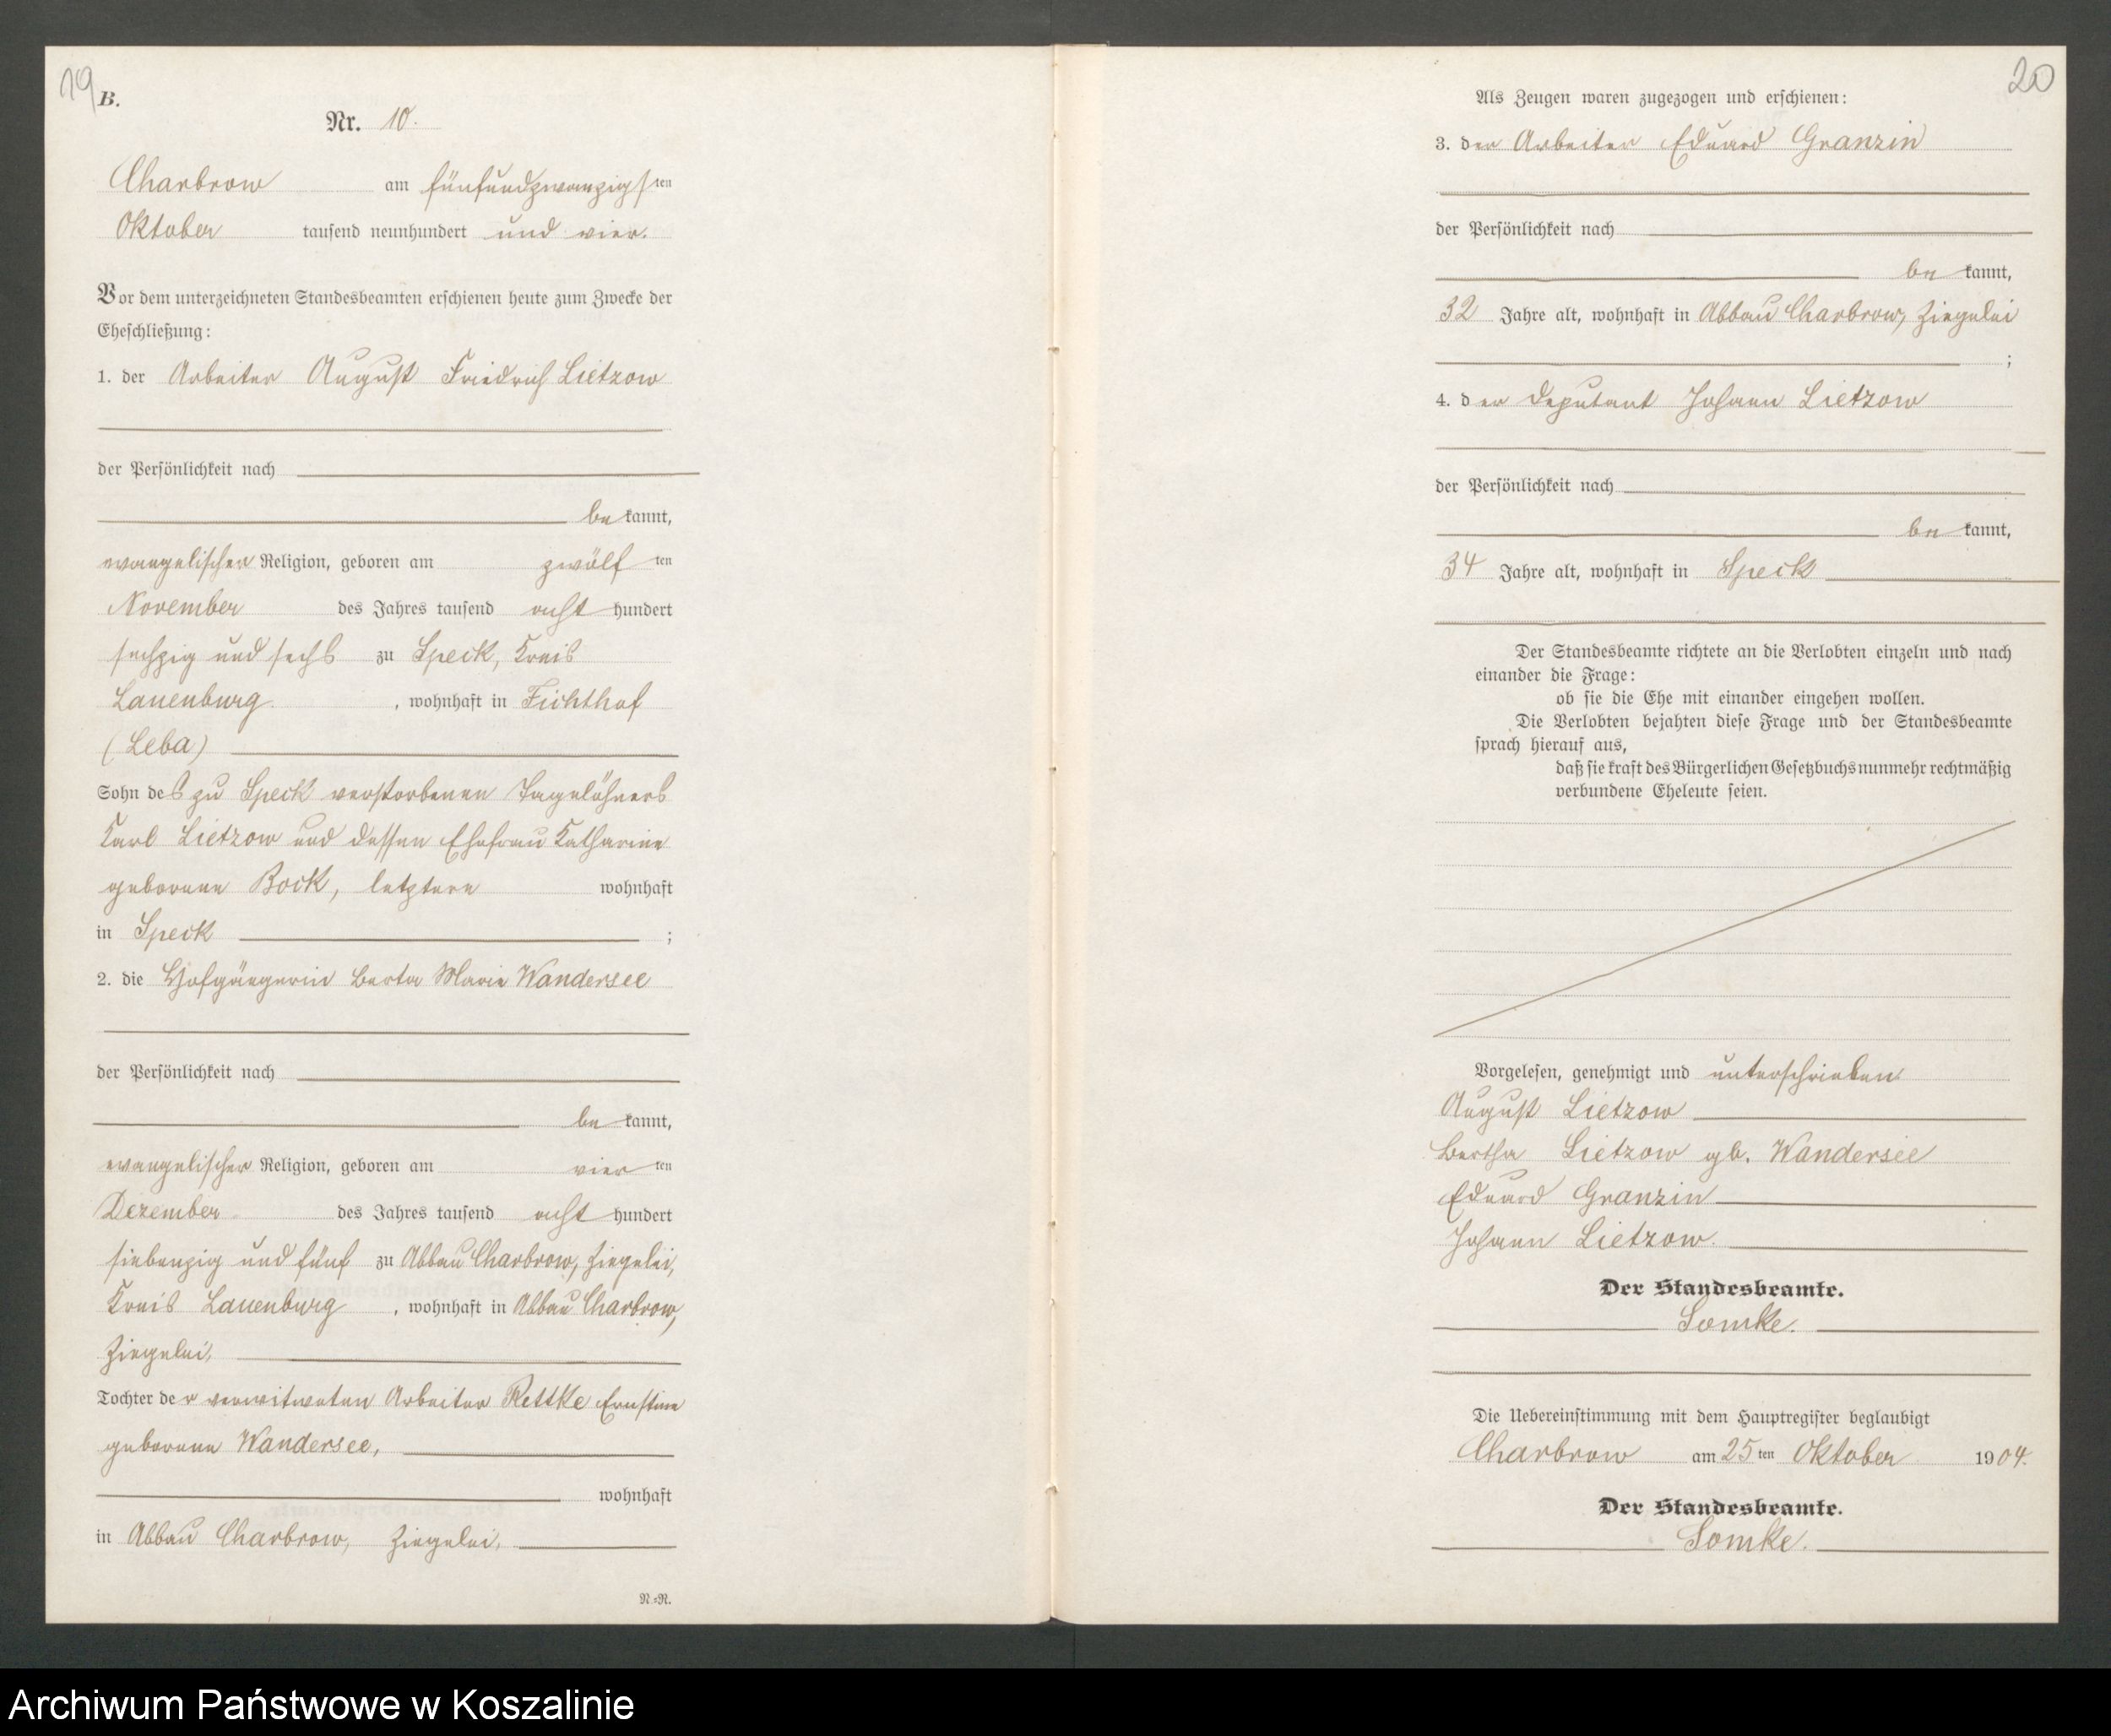 19
B.
Nr. 10.
Charbrow am fünfundzwanzigsten
Oktober tausend neunhundert und vier.
Vor dem unterzeichneten Standesbeamten erschienen heute zum Zwecke der
Eheschließung:
1. der Arbeiter August Friedrich Lietzow
der Persönlichkeit nach
bekannt,
evangelischer Religion, geboren am zwölften
November des Jahres tausend achthundert
sechzig und sechs zu Speck, Kreis
Lauenburg, wohnhaft in Fichthof
(Leba)
Sohn des zu Speck verstorbenen Tagelöhners
Karl Lietzow und dessen Ehefrau Katharine
geborene Bock, letztere wohnhaft
in Speck ;
2. die Hofgängerin Berta Marie Wandersee
der Persönlichkeit nach
bekannt,
evangelischer Religion, geboren am vierten
Dezember des Jahres tausend achthundert
siebenzig und fünf zu Abbau Charbrow, Ziegelei,
Kreis Lauenburg, wohnhaft in Abbau Charbrow,
Ziegelei,
Tochter der verwitweten Arbeiter Rettke Ernstine
geborene Wandersee,
wohnhaft
in Abbau Charbrow, Ziegelei,
N.=R.
20
Als Zeugen waren zugezogen und erschienen:
3. der Arbeiter Eduard Granzin
der Persönlichkeit nach
bekannt,
32 Jahre alt, wohnhaft in Abbau Charbrow, Ziegelei
;
4. der Deputant Johann Lietzow
der Persönlichkeit nach
bekannt,
34 Jahre alt, wohnhaft in Speck
Der Standesbeamte richtete an die Verlobten einzeln und nach
einander die Frage:
ob sie die Ehe mit einander eingehen wollen.
Die Verlobten bejahten diese Frage und der Standesbeamte
sprach hierauf aus,
daß sie kraft des Bürgerlichen Gesetzbuchs nunmehr rechtmäßig
verbundene Eheleute seien.
Vorgelesen, genehmigt und unterschrieben
August Lietzow
Bertha Lietzow gb. Wandersee
Eduard Granzin
Johann Lietzow.
Der Standesbeamte.
Somke.
Die Uebereinstimmung mit dem Hauptregister beglaubigt
Charbrow am 25ten Oktober 1904.
Der Standesbeamte.
Somke.
Archiwum Państwowe w Koszalinie